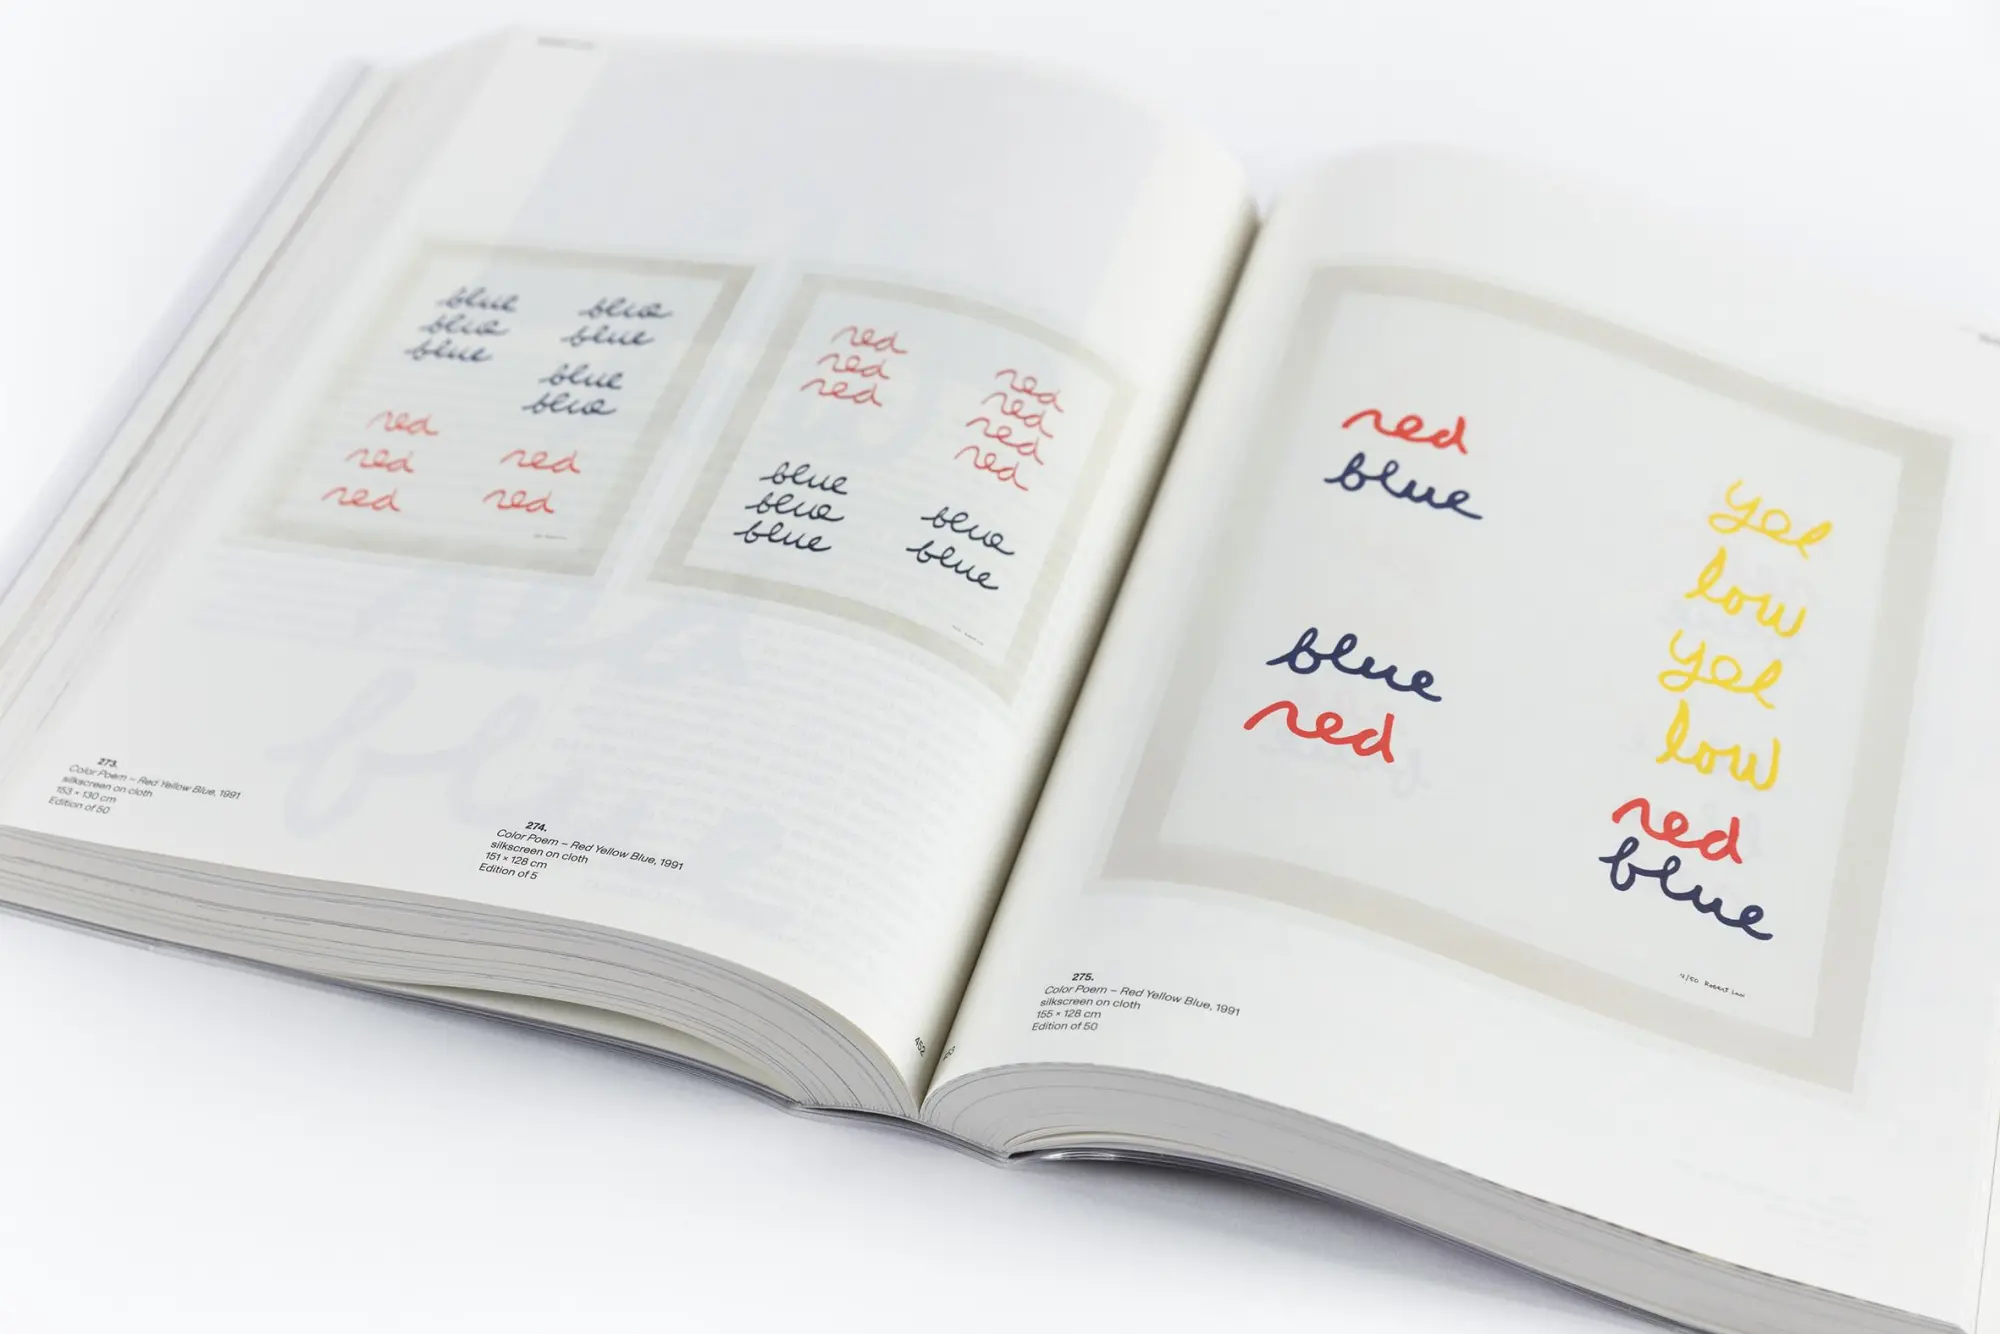 blue
blue
blue
blue
blue
blue
blue
red
red
red
red
red
red
red
red
red
red
red
red
blue
blue
blue
blue
blue
273.
Color Poem – Red Yellow Blue, 1991
silkscreen on cloth
153 × 130 cm
Edition of 50
274.
Color Poem – Red Yellow Blue, 1991
silkscreen on cloth
151 × 128 cm
Edition of 5
452
red
blue
blue
red
yel
low
yel
low
red
blue
Robert Lax
275.
Color Poem – Red Yellow Blue, 1991
silkscreen on cloth
155 × 128 cm
Edition of 50
453